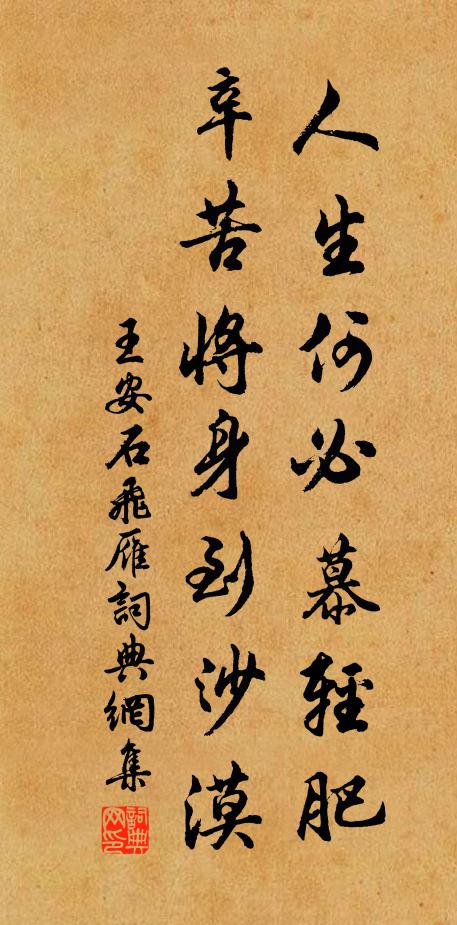 人生何必慕輕肥
辛苦將身到沙漠
王安石飛雁詞典網集
詞典網印